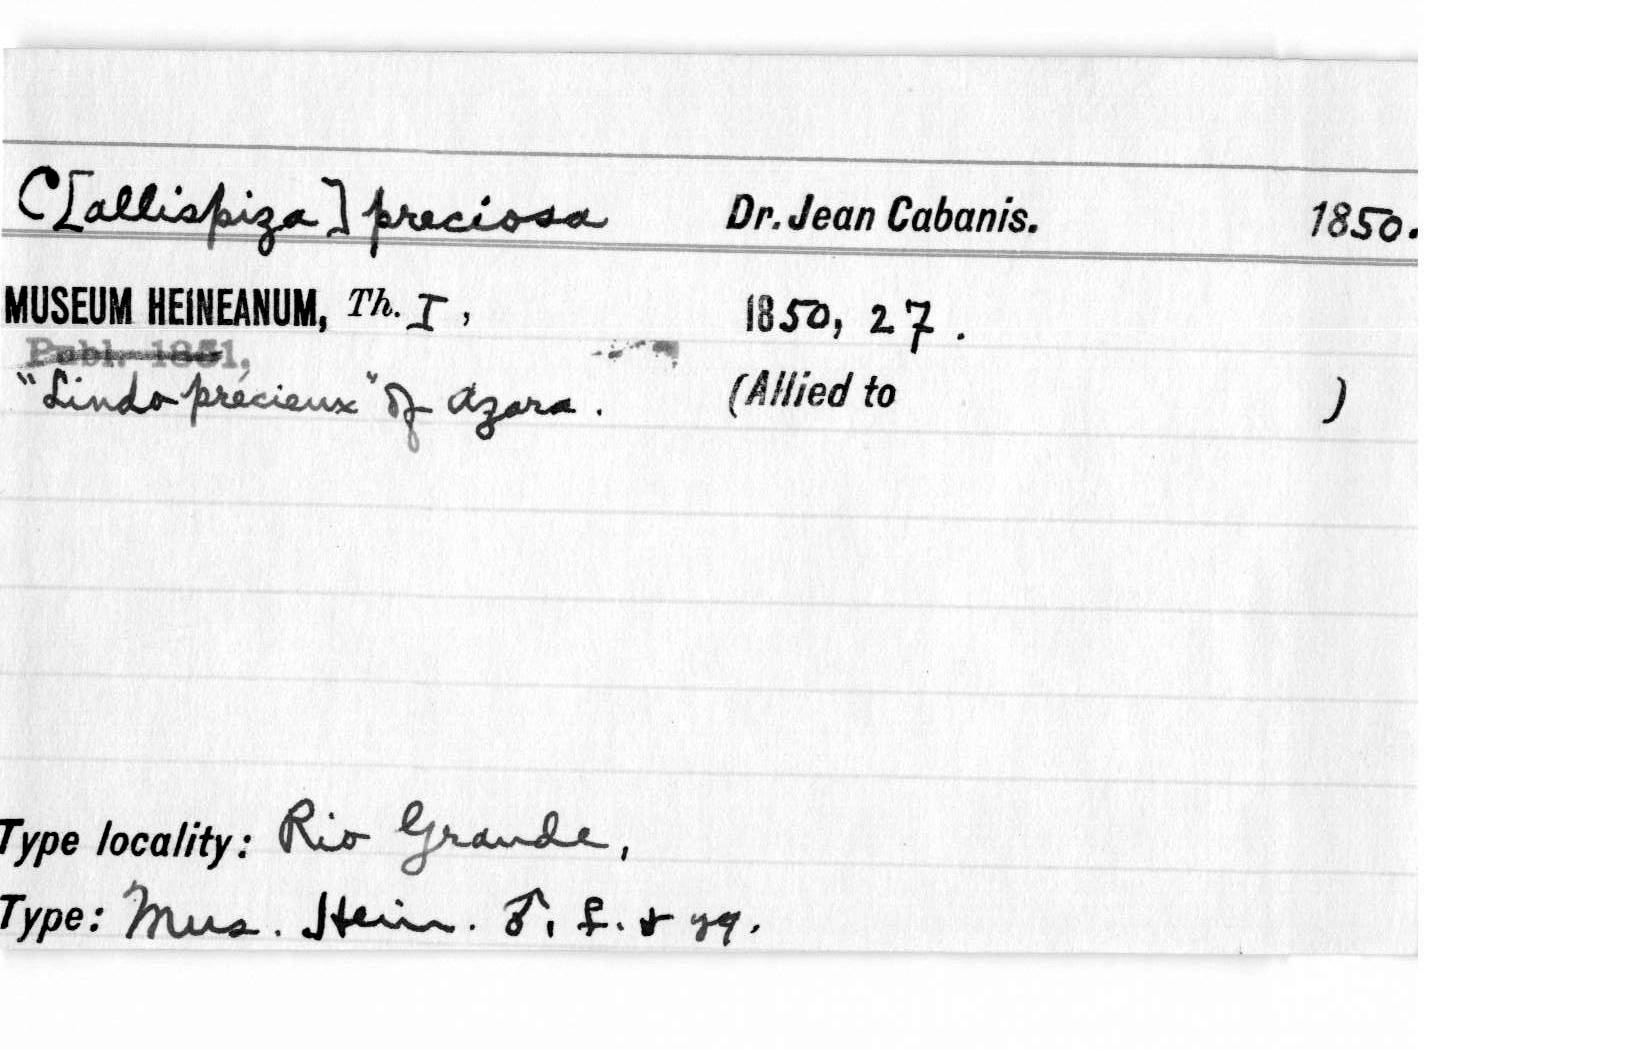 C[allispiza] preciosa Dr. Jean Cabanis. 1850.
MUSEUM HEINEANUM, Th. I, 1850, 27.
Publ. 1851,
"Lindo précieux" of Azara. (Allied to )
Type locality: Rio Grande,
Type: Mus. Hein. ♂, ♀. & yg.